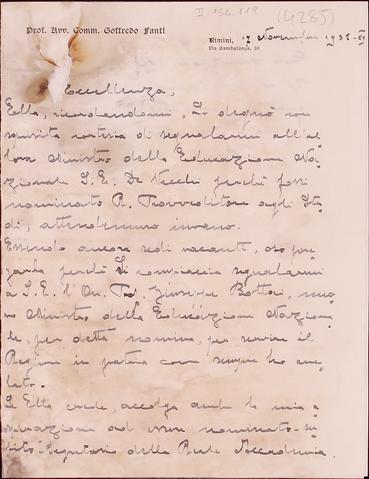 II. 156. 119
(4285)
Prof. Avv. Comm. Goffredo Fanti
Rimini, 17 Novembre 1936-XV
Via Gambalunga, 30
Eccellenza,
Ella, ricordandomi, Si degnò con
squisita cortesia di segnalarmi all'al=
lora Ministro della Educazione Na=
zionale S. E. De Vecchi perché fossi
nominato R. Provveditore agli Stu=
di, attendemmo invano.
Essendo ancora sedi vacanti, oso pre=
garla perché Si compiaccia segnalarmi
a S. E. l'On. Giuseppe Bottai, nuo=
vo Ministro della Educazione Naziona=
le, per detta nomina, per servire il
Regime in patria come sempre ho ane=
lato.
Se Ella crede, accolga anche la mia a=
spirazione ad essere nominato
Segretario della Reale Accademia